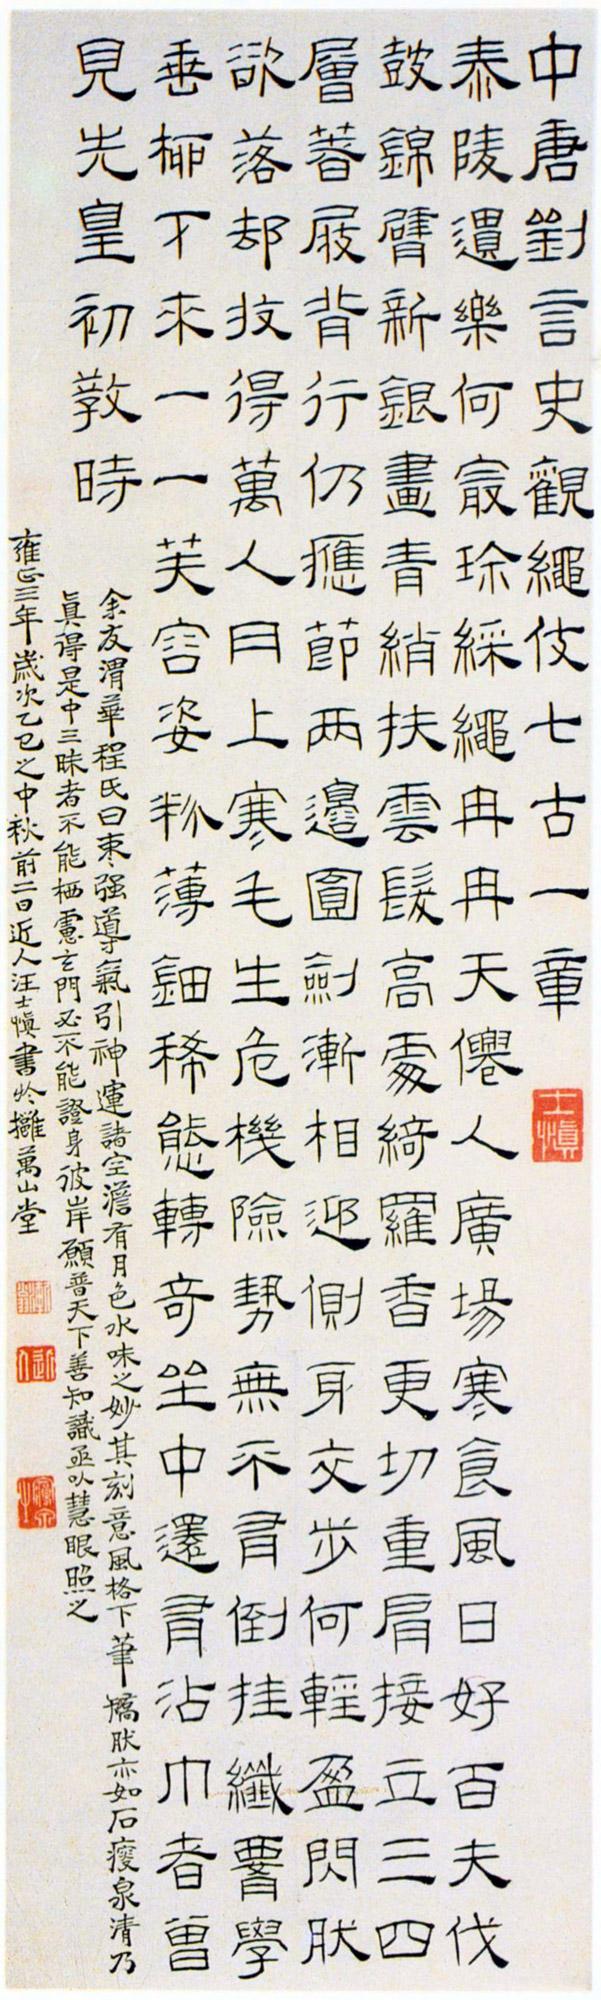 中唐劉言史觀繩伎七古一章
士慎
泰陵遺樂何最珍綵繩冉冉天僊人廣場寒食風日好百夫伐
鼓錦臂新銀畫青綃抹雲髮高處綺羅香更切重肩接立三四
層著屐背行仍應節兩邊圓劍漸相迎側身交步何輕盈閃肰
欲落却收得萬人肉上寒毛生危機險勢無不有倒挂纖腰學
垂柳下來一一芙容姿粉薄鈿稀態轉奇坐中還有沾巾者曾
見先皇初教時
余友渭華程氏曰棗强導氣引神運諸空澹有月色水味之妙其刻意風格下筆矯肰亦如石瘦泉清乃
真得是中三昧者不能栖慮玄門必不能證身彼岸願普天下善知識亟以慧眼照之
雍正三年歲次乙巳之中秋前二日近人汪士慎書於攤萬山堂